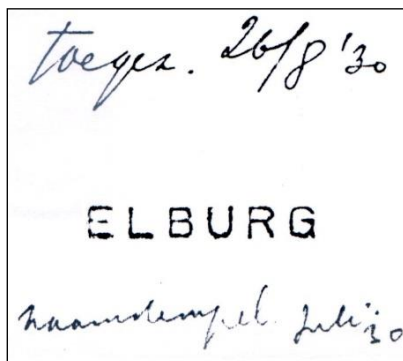 toegez. 26/8 '30
ELBURG
naamstempel. Juli '30